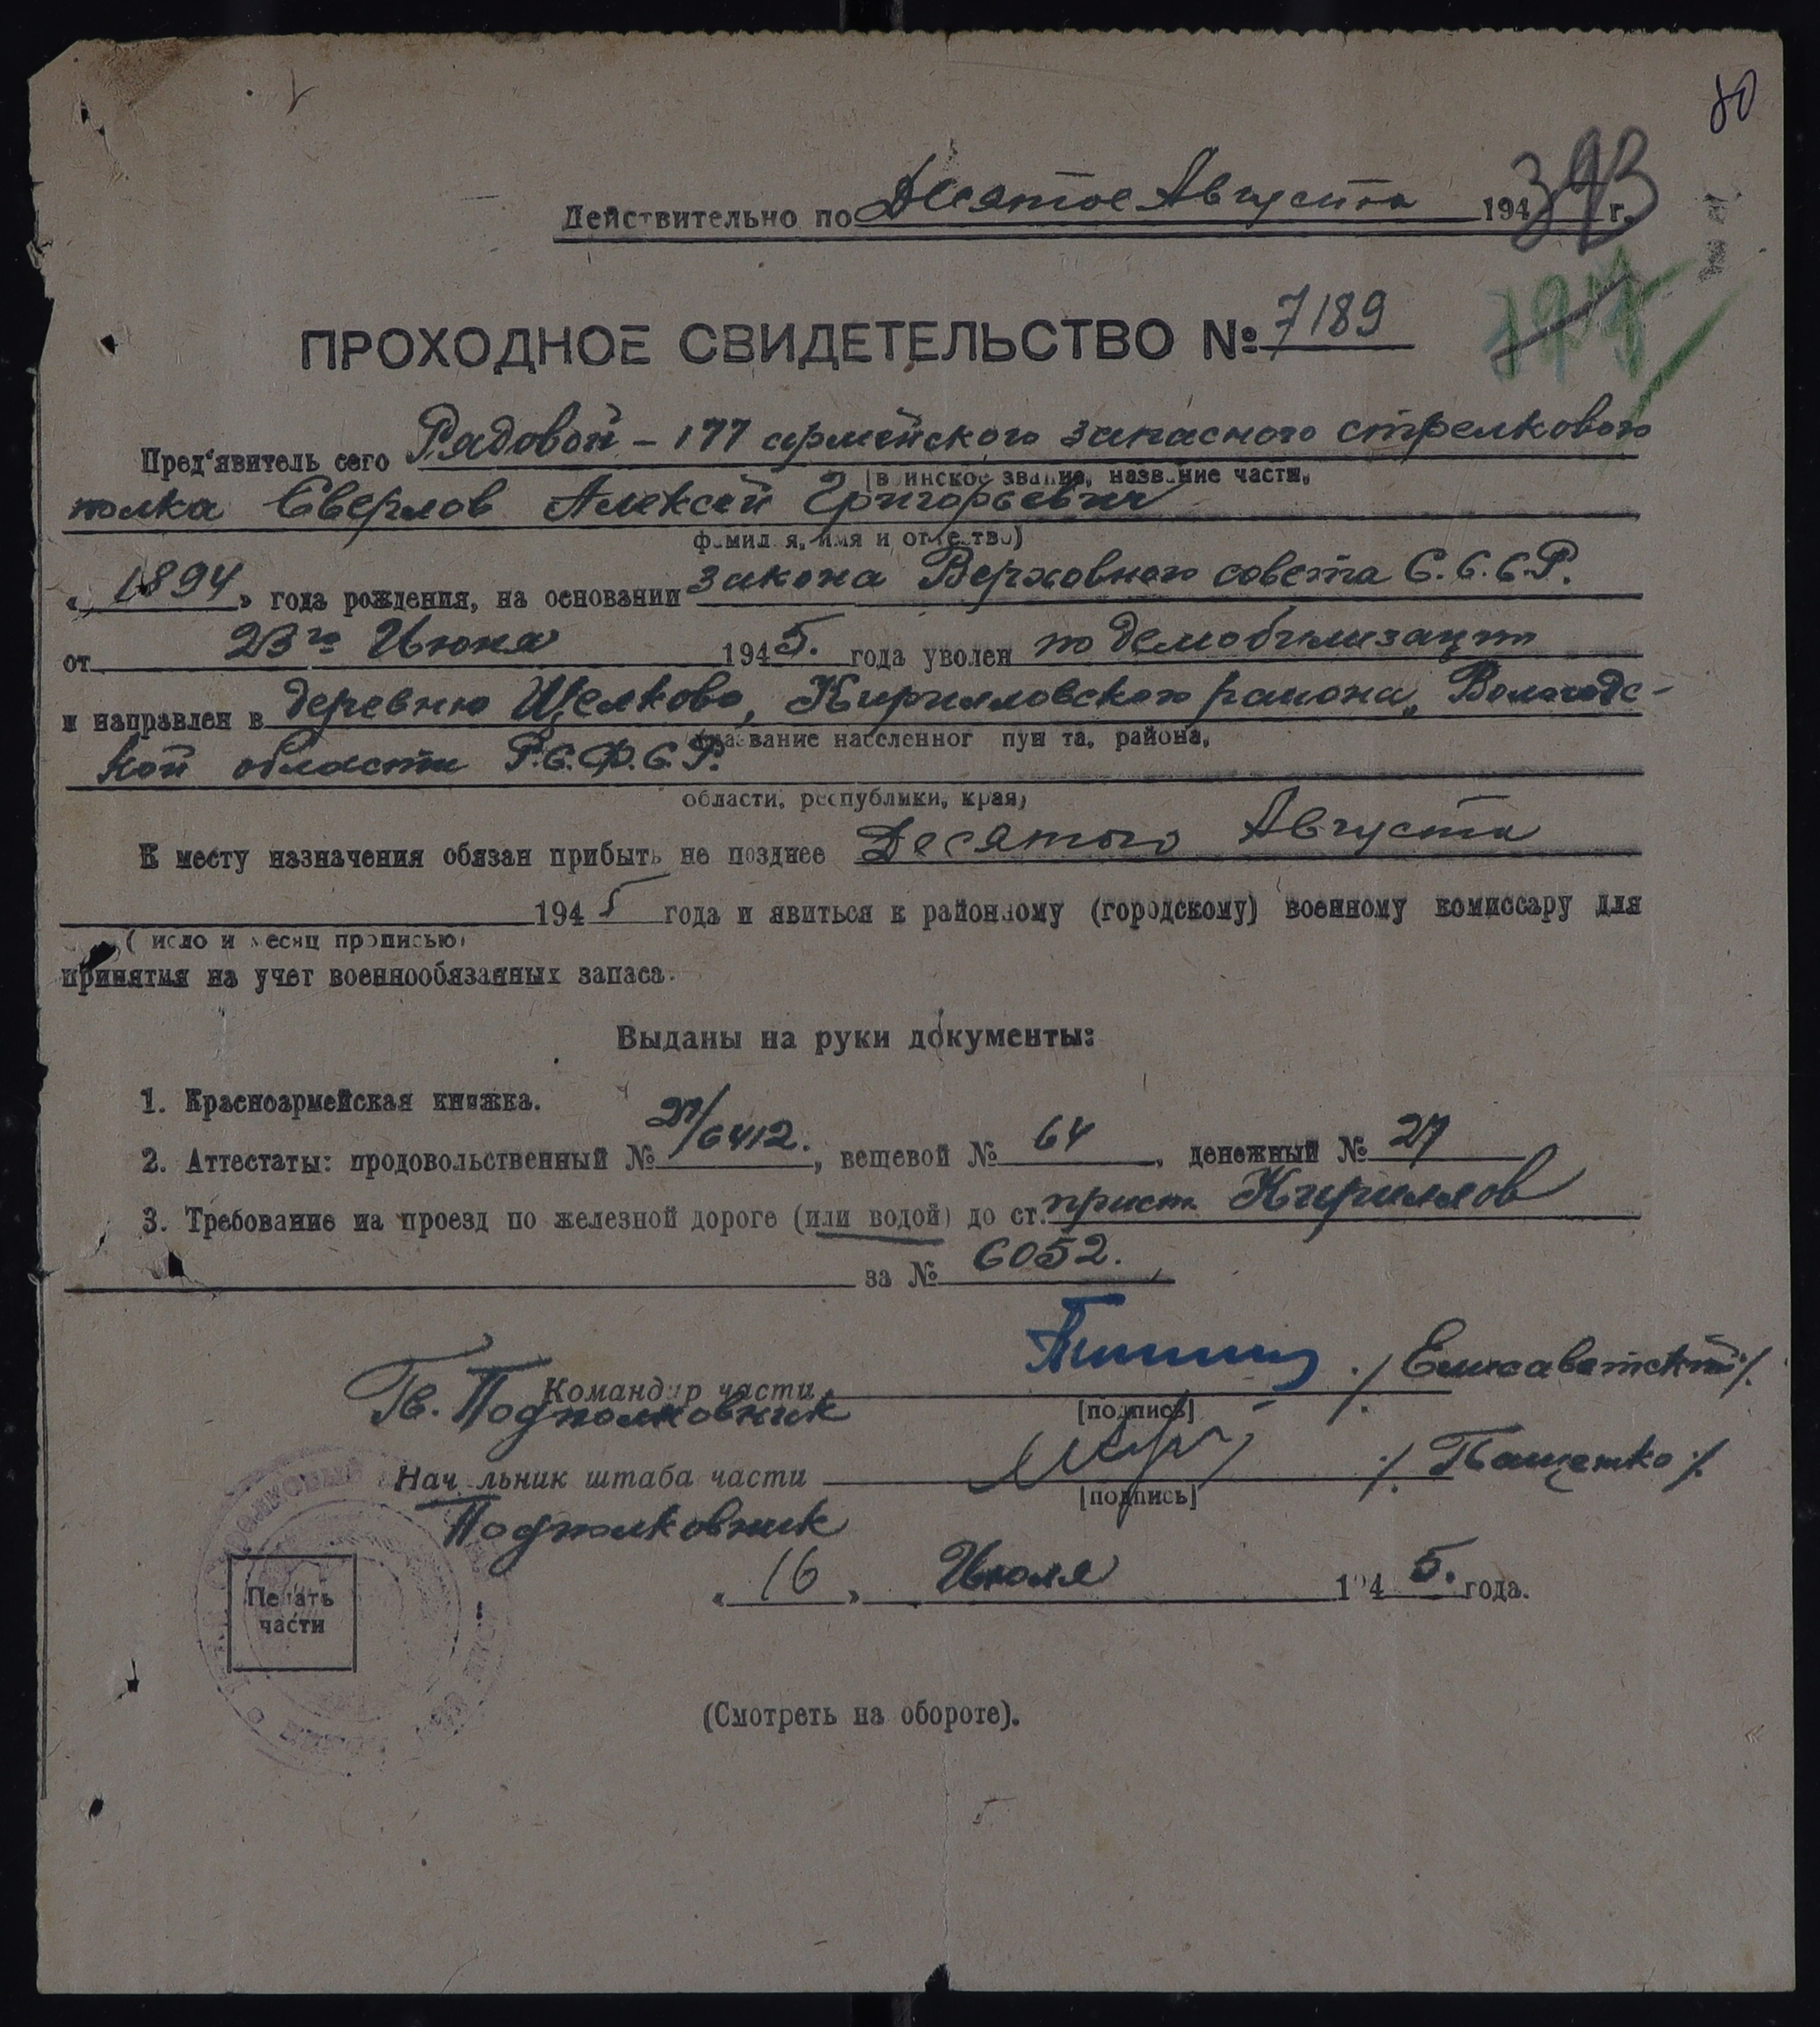 80
Действительно по Десятое Августа 194 г.
393
ПРОХОДНОЕ СВИДЕТЕЛЬСТВО № 7189
Пред'явитель сего Рядовой - 177 армейского запасного стрелкового
(воинское звание, название части,
полка Сверлов Алексей Григорьевич
фамилия, имя и отчество)
« 1894 » года рождения, на основании закона Верховного совета С.С.С.Р.
от 23го Июня 1945. года уволен по демобилизации
и направлен в деревню Щелково, Кирилловского района, Вологодс-
(название населенного пункта, района,
кой области Р.С.Ф.С.Р.
области, республики, края)
К месту назначения обязан прибыть не позднее Десятого Августа
1945 года и явиться к районному (городскому) военному комиссару для
(число и месяц прописью)
принятия на учет военнообязанных запаса.
Выданы на руки документы:
1. Красноармейская книжка.
2. Аттестаты: продовольственный № 27/6412., вещевой № 64, денежный № 27
3. Требование на проезд по железной дороге (или водой) до ст. прист. Кириллов
за № 6052.
Командир части ./ Елисаветский /.
Гв. Подполковник
[подпись]
Начальник штаба части ./. Пащенко ./.
[подпись]
Подполковник
« 16 » Июля 1945. года.
Печать
части
(Смотреть на обороте).